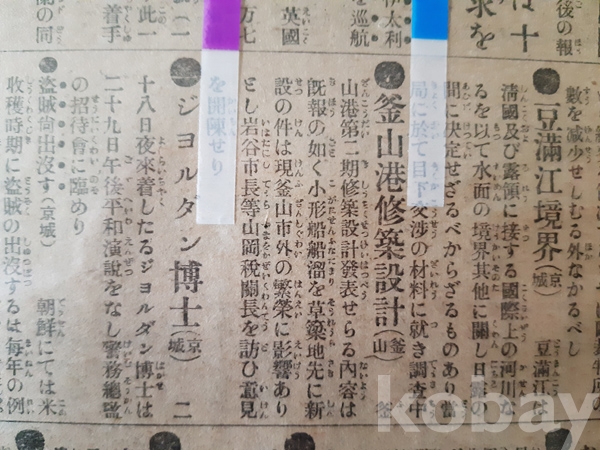 後の報
は十
求を
伊太利
を巡航
英國
万七
此一
着手
蘭の同
數を減少せしむる外なかるべし
●豆滿江境界(京城) 豆滿江は
淸國及び露領に接する國際上の河川な
るを以て水面の境界其他に關し日露の
間に決定せざるべからざるものあり當
局に於て目下交渉の材料に就き調査中
●釜山港修築設計(釜山) 釜
山港第二期修築設計發表せらる內容は
既報の如く小形船船溜を草簗地先に新
設の件は現釜山市外の繁榮に影響あり
とし岩谷市長等山岡稅關長を訪ひ意見
を開陳せり
●ジヨルダン博士(京城) 二
十八日夜來着したるジヨルダン博士は
二十九日午後平和演說をなし警務總監
の招待會に臨めり
●盜賊尙出沒す(京城) 朝鮮にては米
收穫時期に盜賊の出沒するは每年の例
kobay